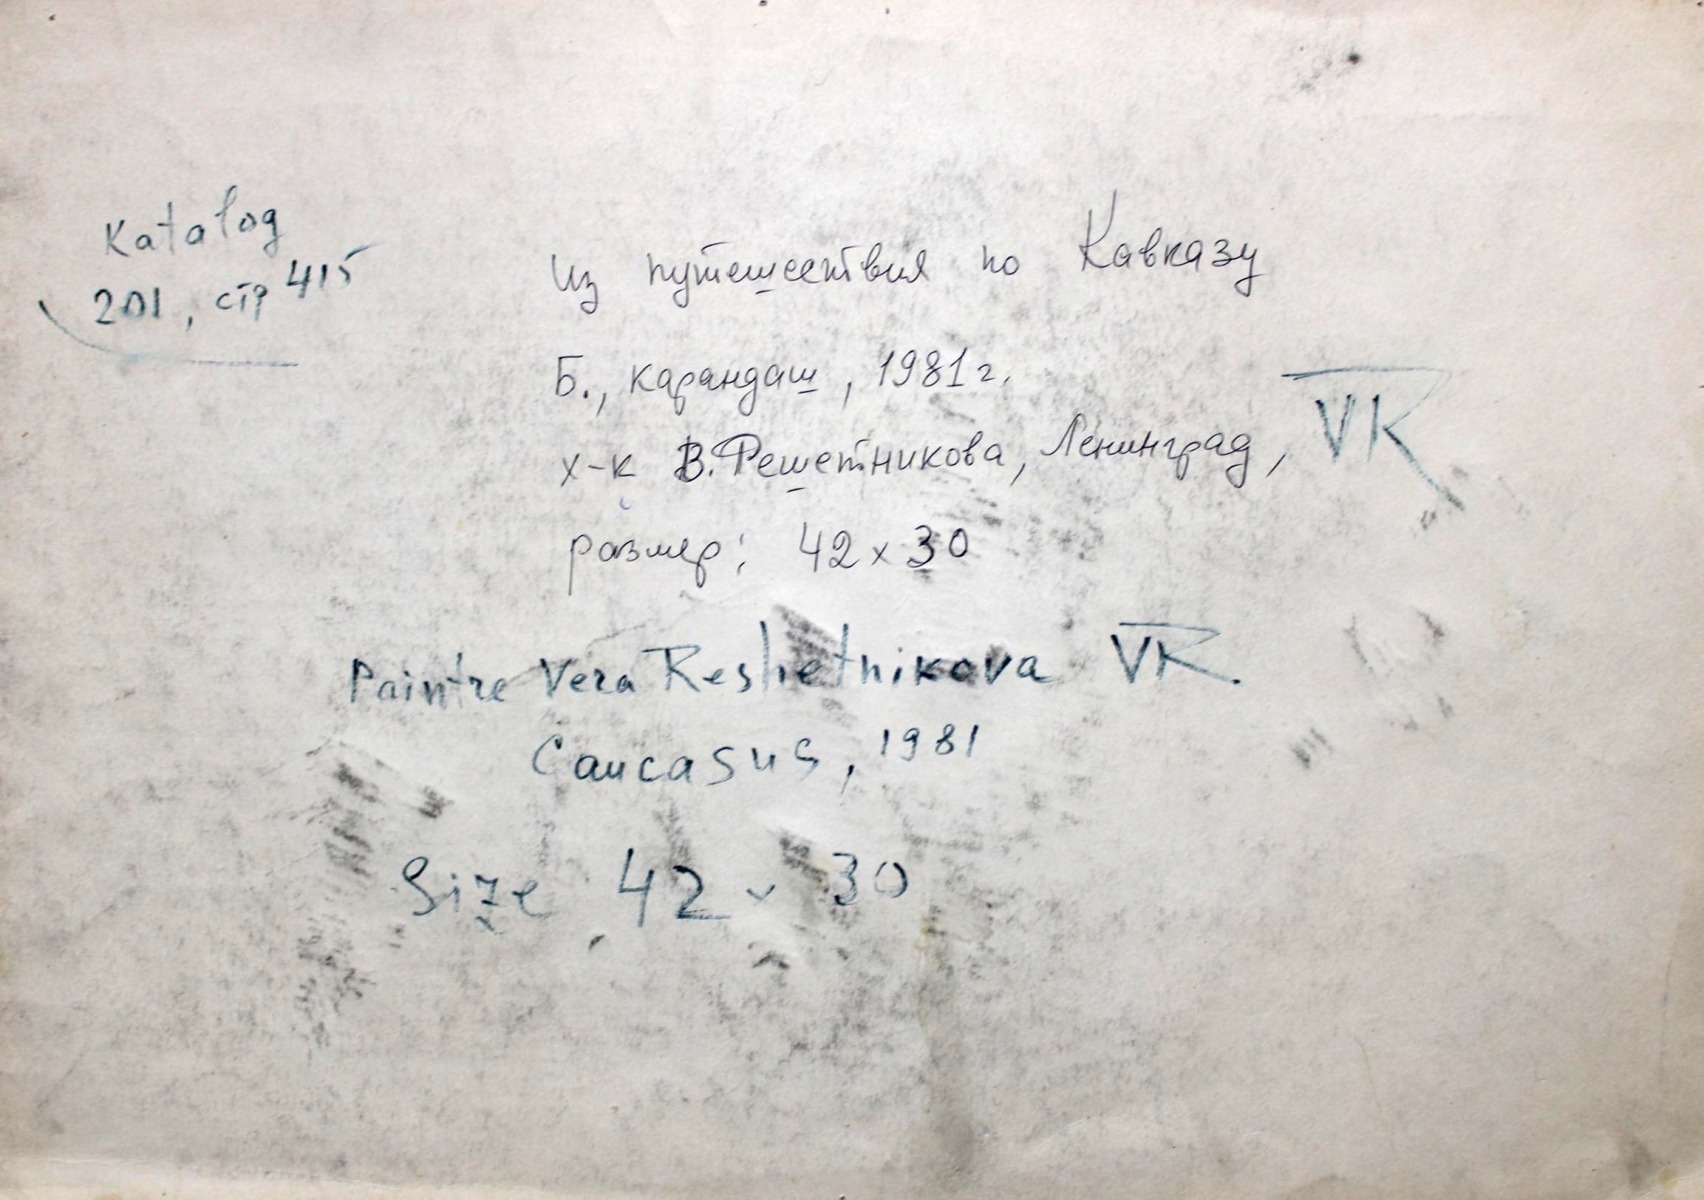 Katalog
201, стр 415
Из путешествия по Кавказу
Б., карандаш, 1981г.
х-к В.Решетникова, Ленинград, VR
размер: 42 x 30
Paintre Vera Reshetnikova VR.
Caucasus, 1981
Size 42 x 30